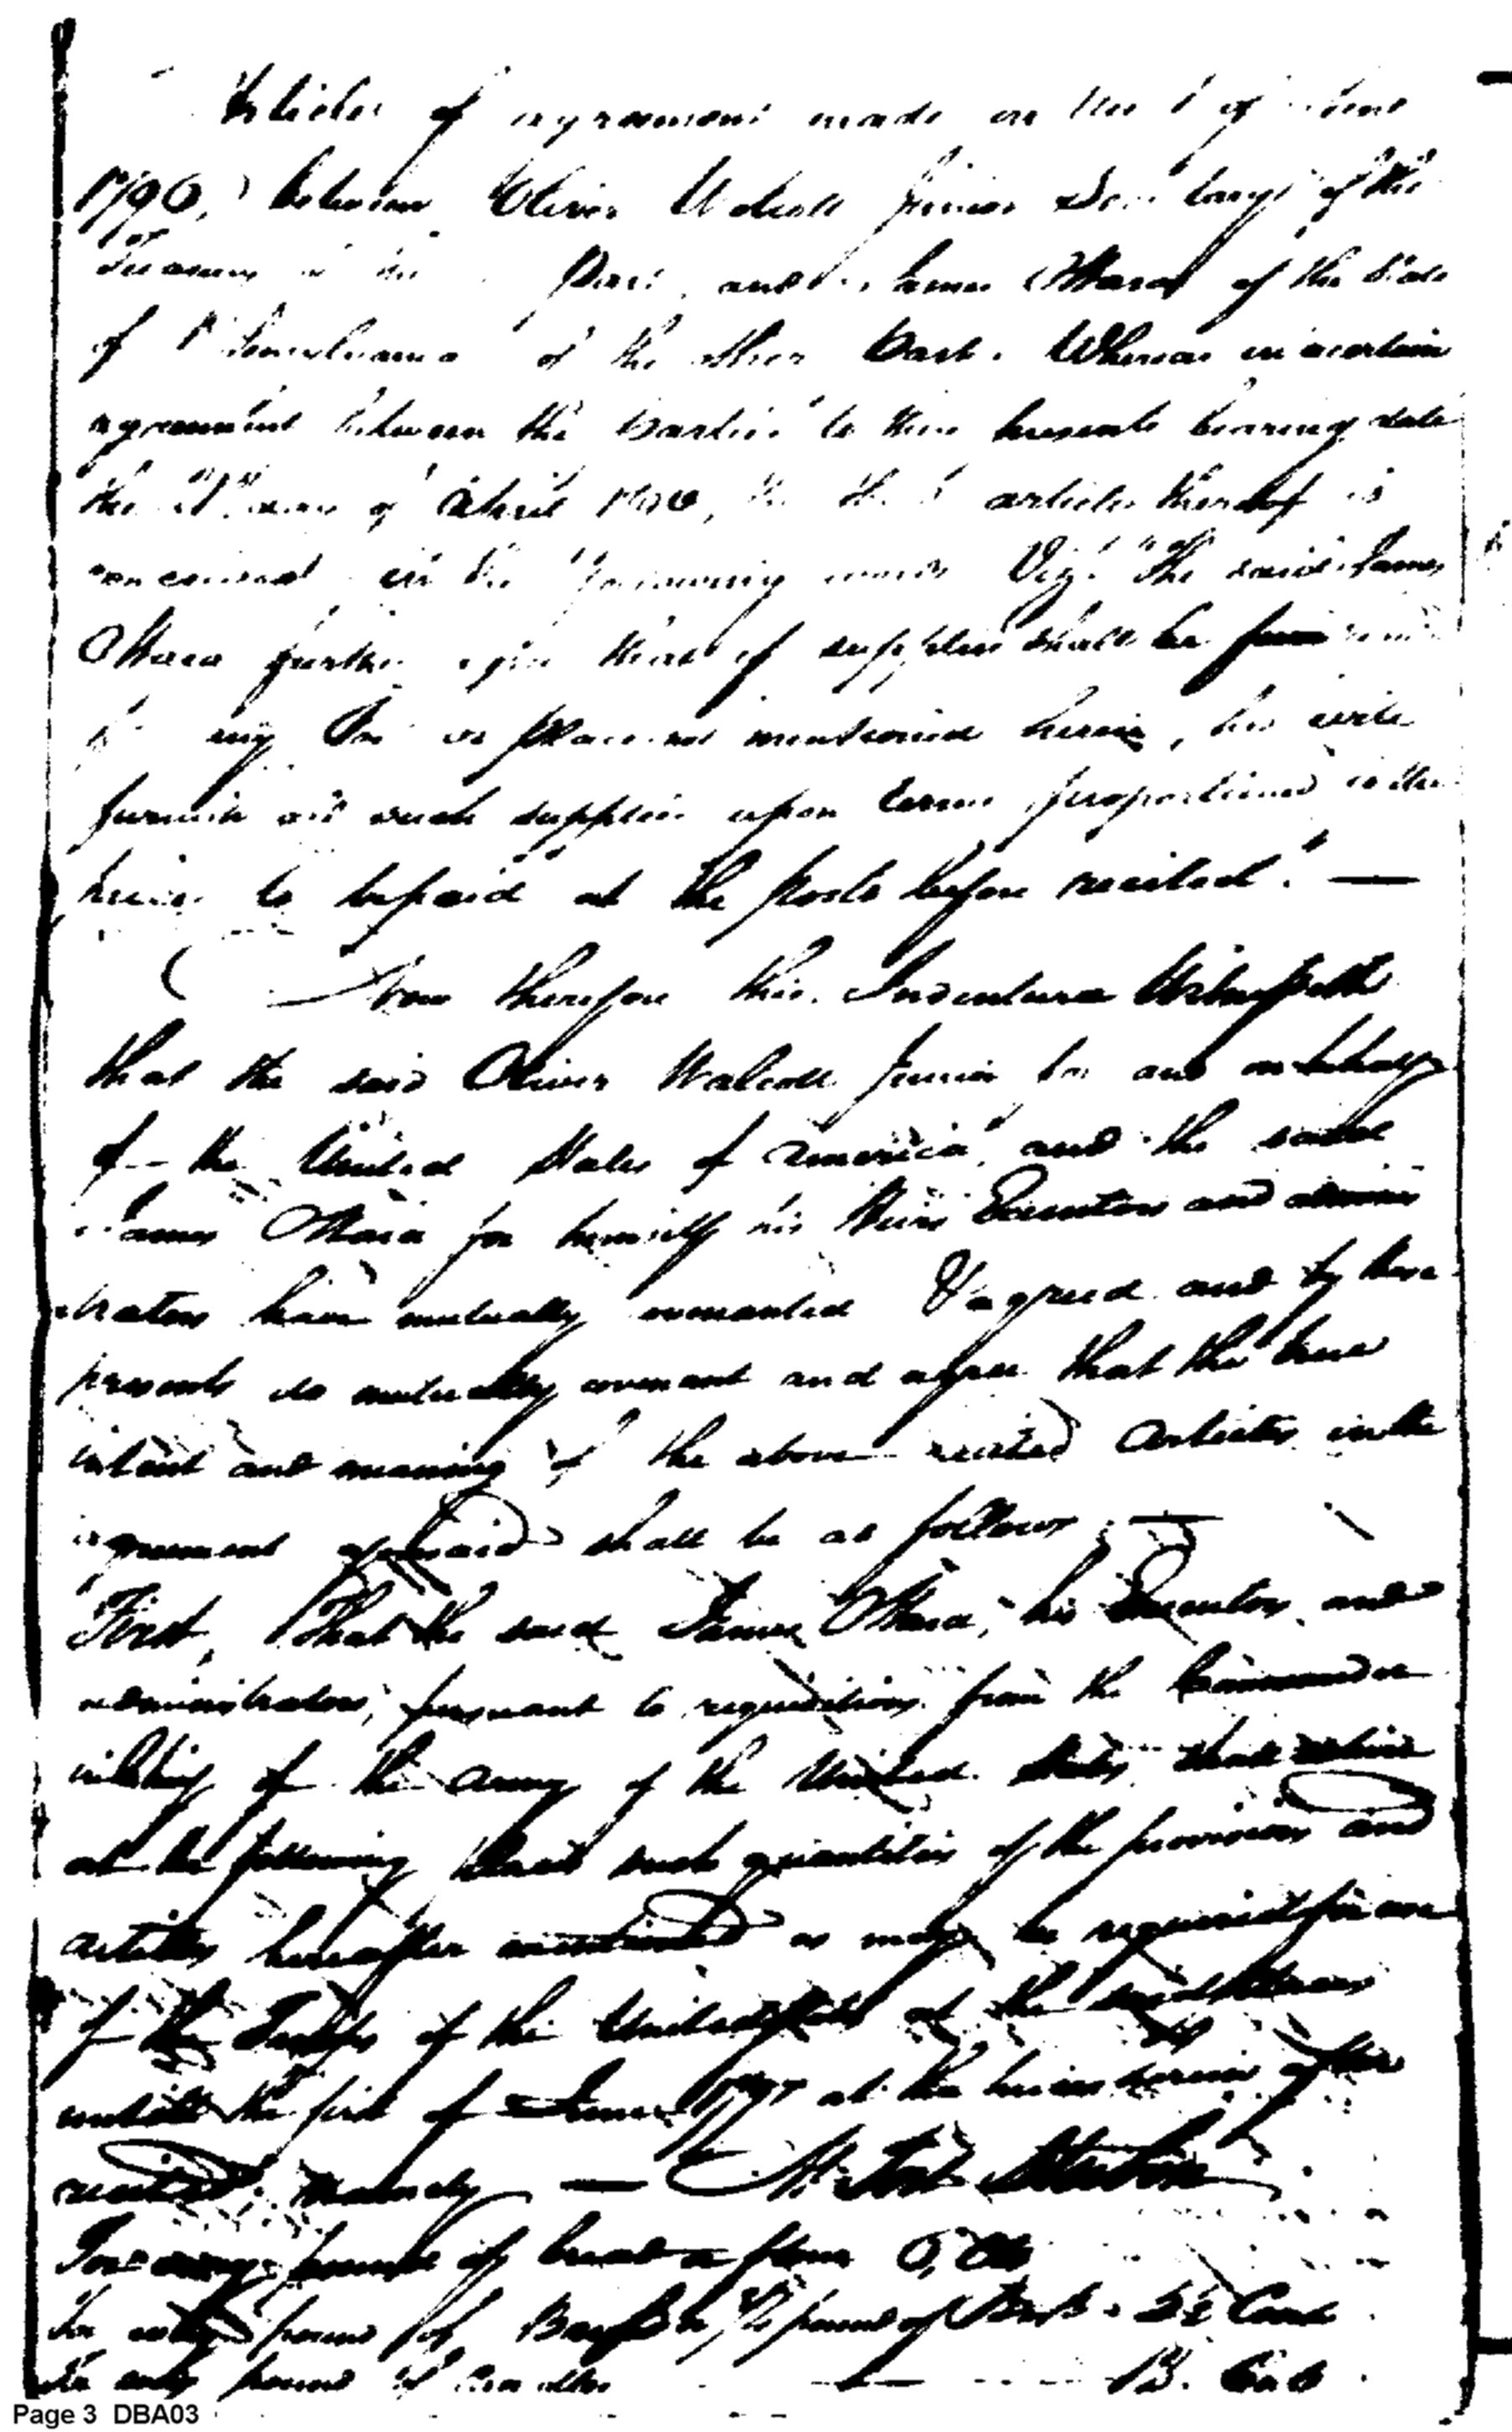 Articles of agreement made on the of
1796, between Oliver Wolcott Junior Secretary of the
Treasury part, and James OHara of the State
of Pennsylvania of the other part. Whereas in a certain
agreement between the parties to these presents bearing date
the day of April 1796, the article thereof is
contained in the following words Viz. "The said James
OHara further agrees that if supplies shall be
for any Post or place not mentioned herein, he will
furnish all such supplies upon terms proportioned to the
prices to be paid at the posts before recited." —
— Now therefore this Indenture Witnesseth
that the said Oliver Wolcott Junior for and on behalf
of the United States of America, and the said
James OHara for himself his Heirs Executors and adminis
trators have mutually covenanted & agreed and by these
presents do mutually covenant and agree that the true
intent and meaning of the above recited Articles in the
agreement aforesaid shall be as follows; —
First, That the said James OHara, his Executors and
administrators, pursuant to requisitions from the Commander
in Chief of the Army of the United States, shall deliver
at the following places such quantities of the provisions and
articles hereafter mentioned as may be required for use
of the Troops of the United States at the said places
untill the first of June 1797 at the prices herein after
recited. Namely — At Fort
For every pound of bread or flour 6, Cts
For every pound of Beef or, ¾ pound of Pork. Cents
For every pound of Candles — Cts
Page 3 DBA03